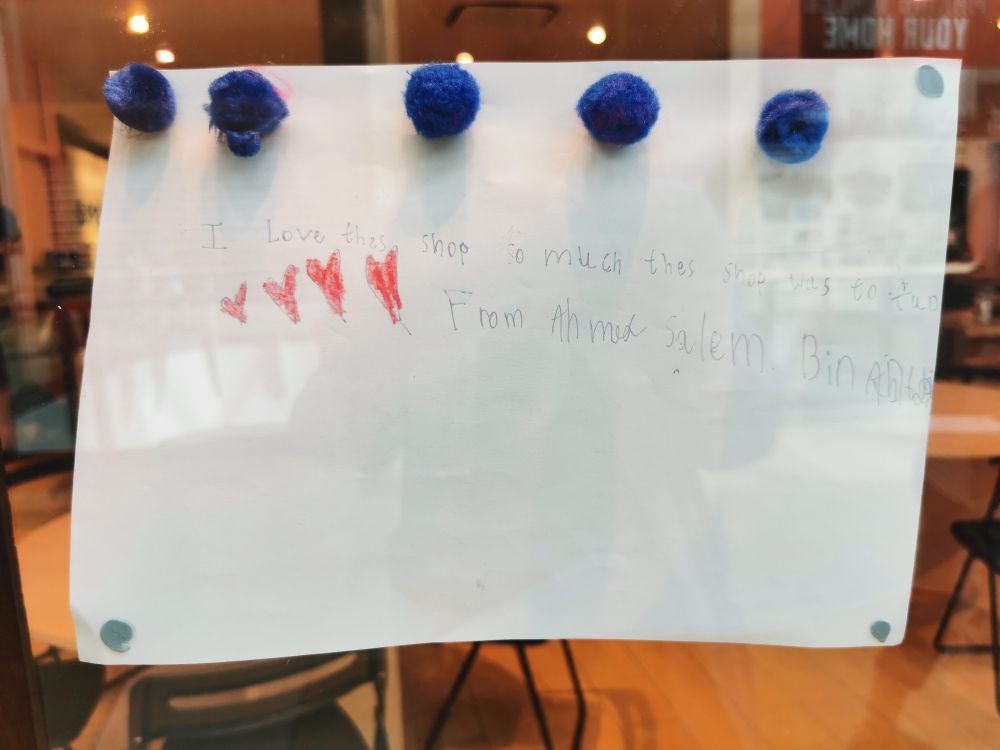 YOUR HOME
I Love thes shop so much thes shop was to fun
From Ahmed Salem Bin